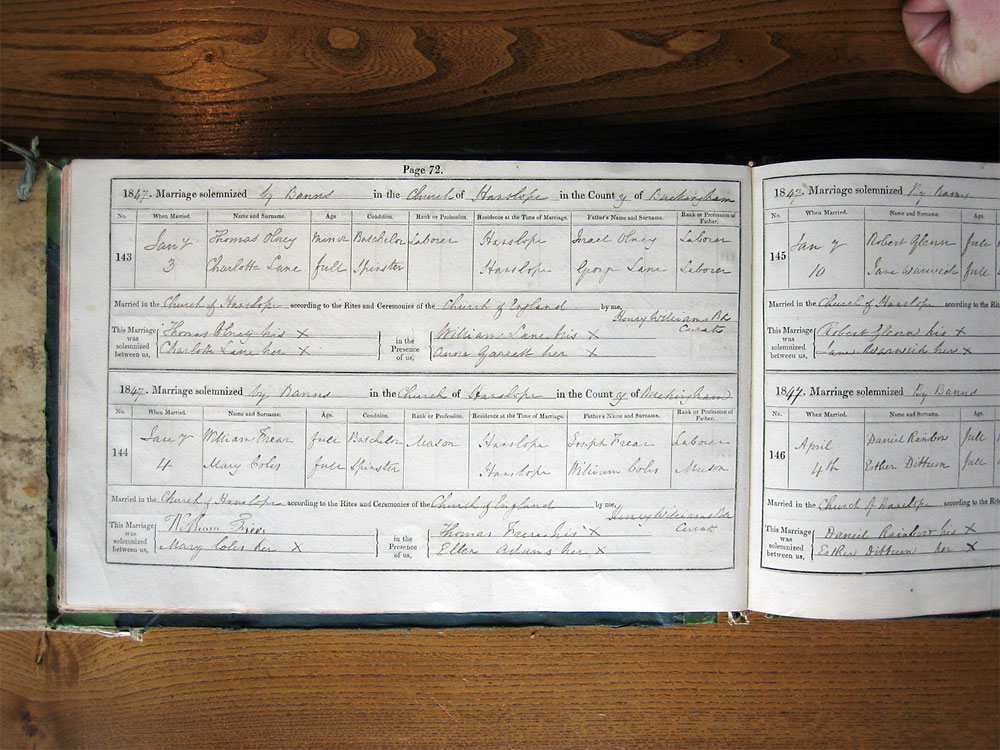 Page 72.
1847. Marriage solemnized by Banns in the Church of Hanslope in the County of Buckingham
No. When Married. Name and Surname. Age. Condition. Rank or Profession. Residence at the Time of Marriage. Father's Name and Surname. Rank or Profession of Father.
143 Jany Thomas Olney Minor Batchelor Laborer Hanslope Israel Olney Laborer
3 Charlotte Lane full Spinster Hanslope George Lane Laborer
Married in the Church of Hanslope according to the Rites and Ceremonies of the Church of England by me, Henry Williams
Curate
This Marriage was solemnized between us, Thomas Olney his X in the Presence of us, William Lane his X
Charlotte Lane her X Annie Garrett her X
1847. Marriage solemnized by Banns in the Church of Hanslope in the County of Buckingham
No. When Married. Name and Surname. Age. Condition. Rank or Profession. Residence at the Time of Marriage. Father's Name and Surname. Rank or Profession of Father.
144 Jany William Frear full Batchelor Mason Hanslope Joseph Frear Laborer
4 Mary Coles full Spinster Hanslope William Coles Mason
Married in the Church of Hanslope according to the Rites and Ceremonies of the Church of England by me, Henry Williams
Curate
This Marriage was solemnized between us, William in the Presence of us, Thomas Frear his X
Mary Coles her X Ellen Adams her X
1847 Marriage solemnized By Banns
No. When Married. Name and Surname. Age.
145 Jany Robert Glenn full
10 Jane Warwick full
Married in the Church of Hanslope according to the Rites
This Marriage was solemnized between us, Robert Glenn his X
James Warwick her X
1847. Marriage solemnized By Banns
No. When Married. Name and Surname. Age.
146 April Daniel Rainbow full
4th Esther full
Married in the Church of Hanslope according to the Rites
This Marriage was solemnized between us, Daniel Rainbow his X
Esther her X